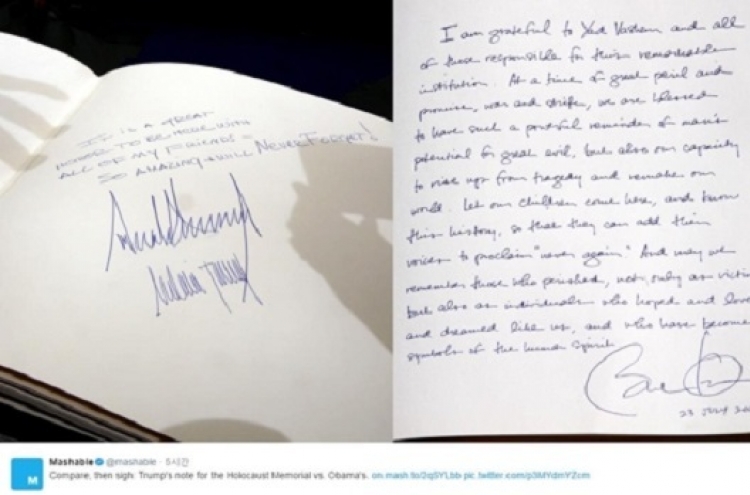 IT IS A GREAT
HONOR TO BE HERE WITH
ALL OF MY FRIENDS -
SO AMAZING + WILL NEVER FORGET!
I am grateful to Yad Vashem and all
of those responsible for this remarkable
institution. At a time of great peril and
promise, war and strife, we are blessed
to have such a powerful reminder of man's
potential for great evil, but also our capacity
to rise up from tragedy and remake our
world. Let our children come here, and know
this history, so that they can add their
voices to proclaim "never again." And may we
remember those who perished, not only as victims
but also as individuals who hoped and loved
and dreamed like us, and who have become
symbols of the human spirit.
23 July
Mashable @mashable · 5시간
Compare, then sigh: Trump's note for the Holocaust Memorial vs. Obama's. on.mash.to/2qSYLbb pic.twitter.com/p3MYdmYZcm